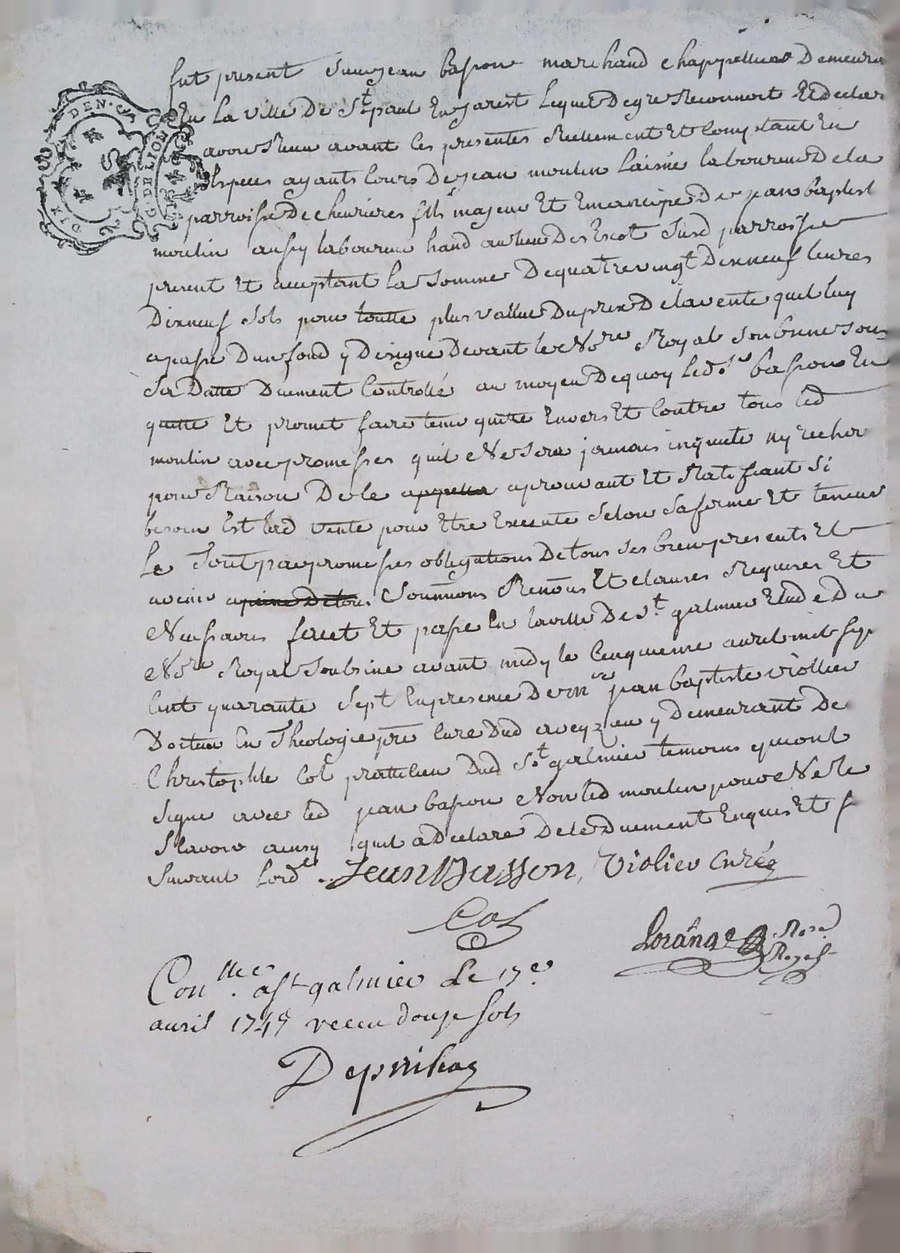 fut present Sieur jean basson marchand chappellier Demeura
En La ville De St paul En jarest Lequel De gre Reconnoit Et declar
avoir Receu avant ces presentes Reellement Et Comptant En
Especes ayants Cours De jean moulin Laisné laboureur De la
parroisse De chevrieres fils majeur Et Emancipé De jean baptist
moulin aussy laboureur hand au lieu Des Escot Susd parroisse
present Et aceptant La Somme De quatre vingt Dixneuf Livres
Dixneuf Sols pour toutte plus vallue Du prix De la vente quil luy
a passé Dun fond y Designe Devant le Nore Royal Soubsigne sou
Sa Datte Duement Controllé au moyen De quoy Led Sr basson En
quitte Et promet faire tenir quitte Envers Et Contre tous led
moulin avec promesses quil Ne Sera jamais inquiete ny recher
pour Raison De ce aprouvant Et Ratifiant Si
besoin Est lad vente pour Etre Executé Selon Sa forme Et teneur
Le Tout par promesses obligations De tous Ses biens presents Et
avenir Soumions Renons Et clauses Requises Et
Necessaires faict Et passé En la ville De St galmier Etude Du
Nore Royal Soubsine avant midy le Cinquieme avril mil Sep
Cent quarante Sept En presence De mr jean baptiste Viollier
Docteur En Theologie pre Curé Dud aveyzieu y Demeurant De
Christophle Col pratticien Dud St galmier temoins qui ont
Signe avec led jean basson Non led moulin pour Ne le
Scavoir ainsy quil a Declaré De ce Duement Enquis Et
Suivant Lord.
Jean Basson, Violier Curé
Col
Nore
Royal
Conllé a St galmier Le 17e
avril 1747 receu douze sols